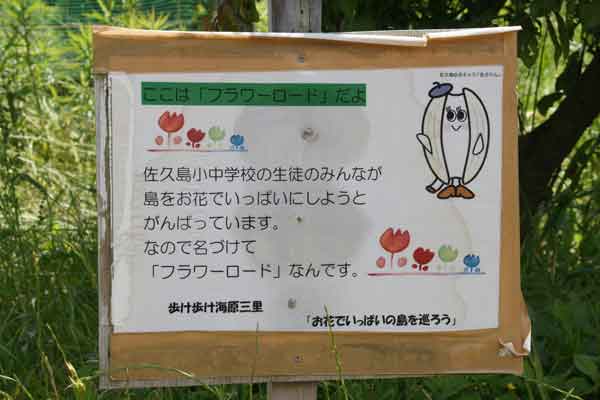 ここは「フラワーロード」だよ
佐久島小中学校の生徒のみんなが
島をお花でいっぱいにしようと
がんばっています。
なので名づけて
「フラワーロード」なんです。
歩け歩け海原三里
「お花でいっぱいの島を巡ろう」